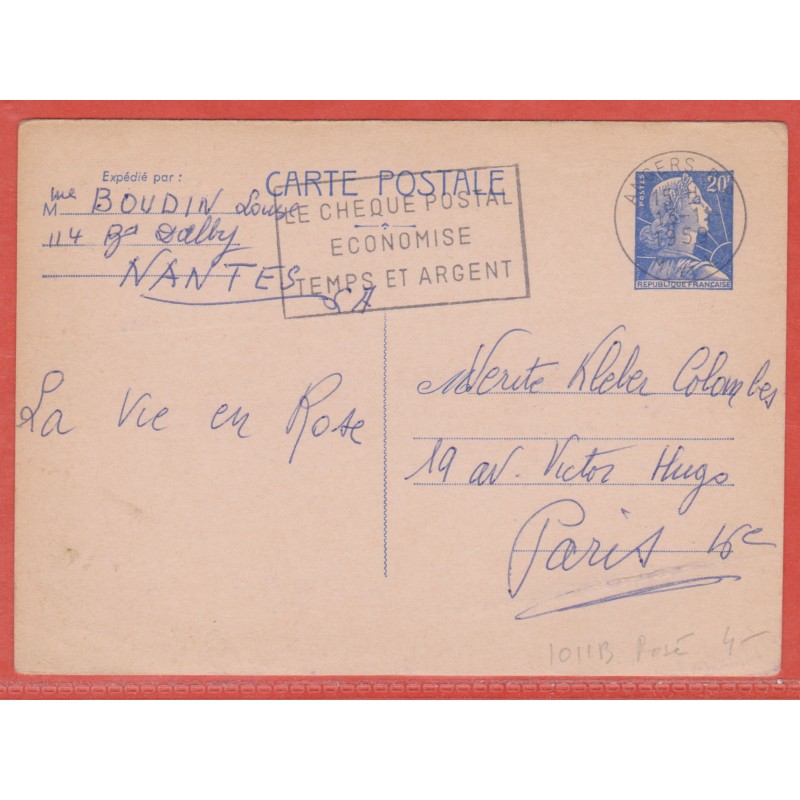 Expédié par :
Mme BOUDIN Louise
114 Bd Dalby
NANTES
LA
CARTE POSTALE
LE CHEQUE POSTAL
ECONOMISE
TEMPS ET ARGENT
ANGERS
15H
195
POSTES
20F
REPUBLIQUE FRANÇAISE
La Vie en Rose
Merite Kleber Colombes
19 av. Victor Hugo
Paris 16e
1011B Rosé 4-